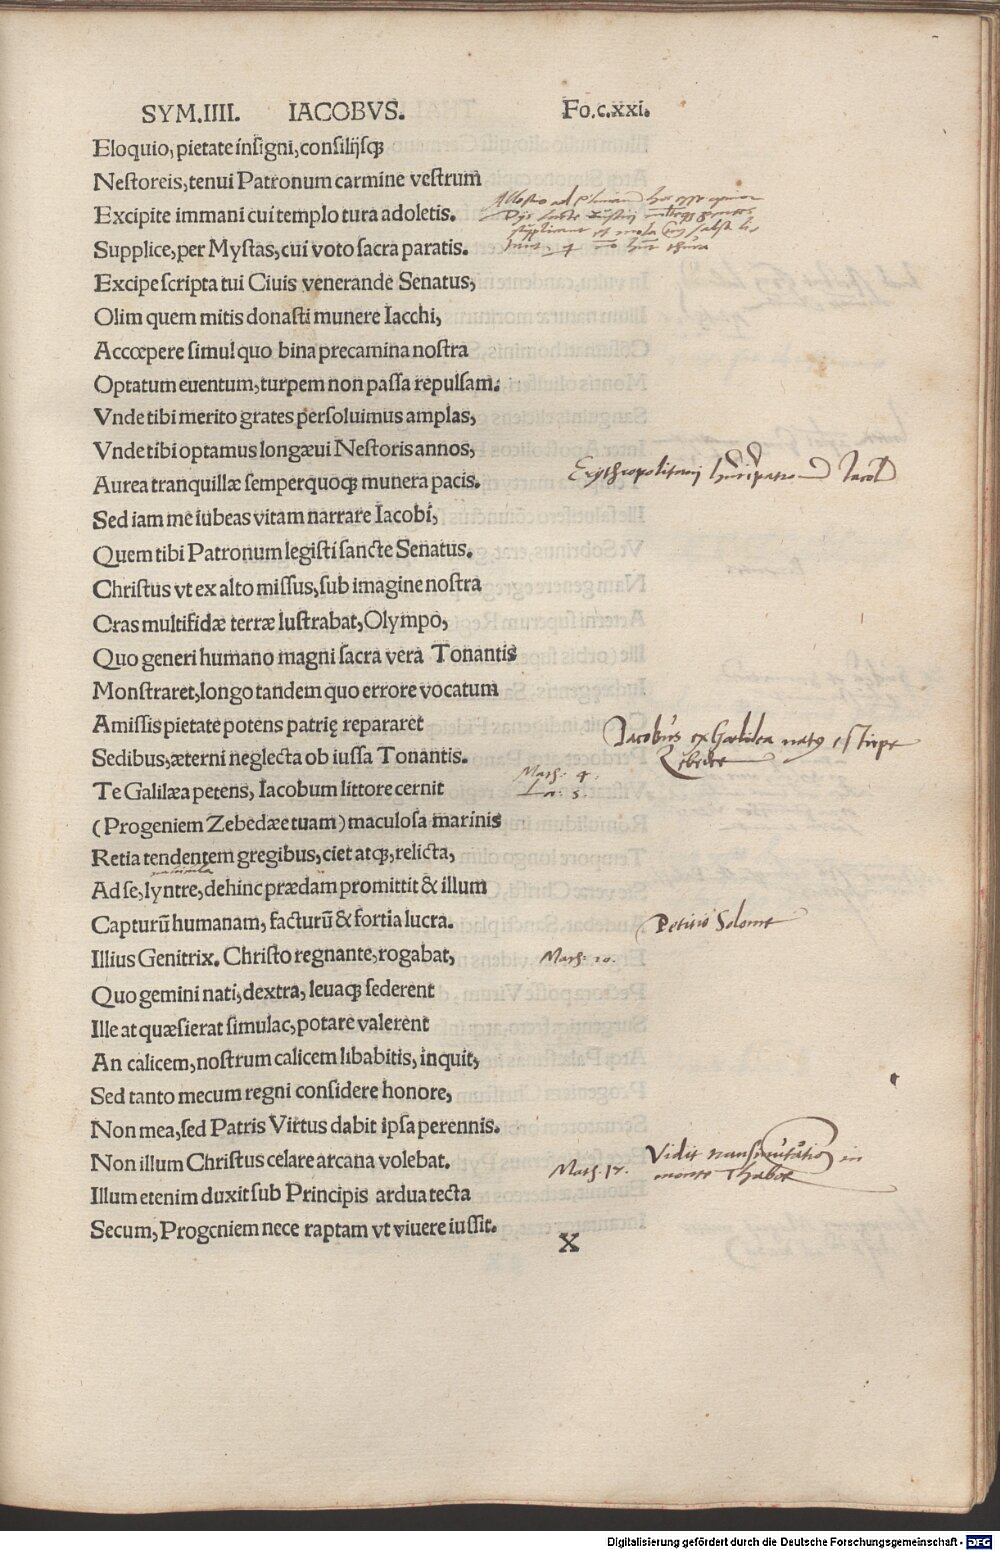 SYM.IIII. IACOBVS. Fo.c.xxi.
Eloquio, pietate insigni, consilijsqꝫ
Nestoreis, tenui Patronum carmine vestrum
Excipite immani cui templo tura adoletis.
Supplice, per Mystas, cui voto sacra paratis.
Excipe scripta tui Ciuis venerande Senatus,
Olim quem mitis donasti munere Iacchi,
Accœpere simul quo bina precamina nostra
Optatum euentum, turpem non passa repulsam.
Vnde tibi merito grates persoluimus amplas,
Vnde tibi optamus longæui Nestoris annos,
Erythropolitanij Iacob
Aurea tranquillæ semper quoqꝫ munera pacis.
Sed iam me iubeas vitam narrare Iacobi,
Quem tibi Patronum legisti sancte Senatus.
Christus vt ex alto missus, sub imagine nostra
Oras multifidæ terræ lustrabat, Olympo,
Quo generi humano magni sacra vera Tonantis
Monstraret, longo tandem quo errore vocatum
Amissis pietate potens patrię repararet
Jacobus ex Galilea natus estirpe
Zebedee
Sedibus, æterni neglecta ob iussa Tonantis.
Math: 4.
Te Galilæa petens, Iacobum littore cernit
Lu: 5.
(Progeniem Zebedæe tuam) maculosa marinis
Retia tendentem gregibus, ciet atqꝫ, relicta,
nauicula
Ad se, lyntre, dehinc prædam promittit & illum
Capturū humanam, facturū & fortia lucra.
Petitio Solome
Illius Genitrix. Christo regnante, rogabat,
Math: 20.
Quo gemini nati, dextra, leuaqꝫ sederent
Ille at quæsierat simulac, potare valerent
An calicem, nostrum calicem libabitis, inquit,
Sed tanto mecum regni considere honore,
Non mea, sed Patris Virtus dabit ipsa perennis.
Non illum Christus celare arcana volebat.
Math. 17. Vidit transmutationē in
monte Thabor
Illum etenim duxit sub Principis ardua tecta
Secum, Progeniem nece raptam vt viuere iussit.
X
Digitalisierung gefördert durch die Deutsche Forschungsgemeinschaft - DFG